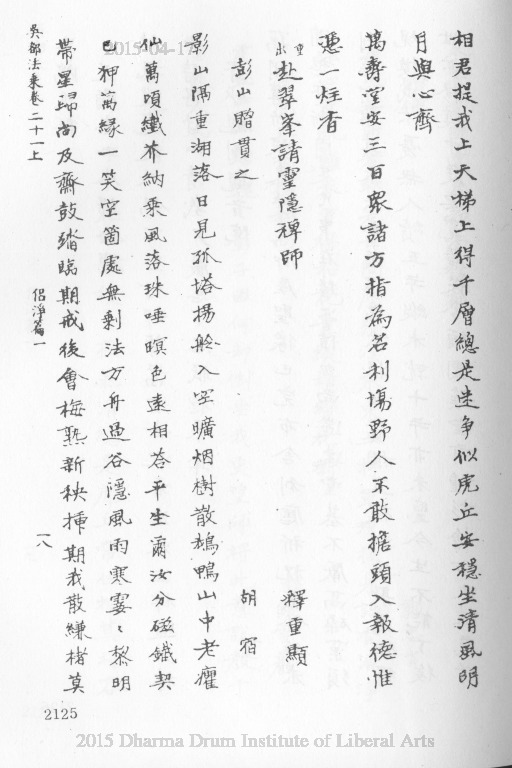 相君提我上天梯上得千層總是迷爭似虎丘安穩坐清風明
月與心齊
萬壽堂安三百眾諸方指為名利場野人不敢擔頭入報德惟
憑一炷香
重出赴翠峯請靈隱禪師　釋重顯
彭山贈貫之　胡宿
影山隔重湖落日見孤塔揚舲入空曠烟樹散鵝鴨山中老癯
仙萬頃纖芥納乘風落珠唾暝色遠相荅平生爾汝分磁鐵契
已狎萬緣一笑空箇處無剩法方舟過谷隱風雨寒霎〻黎明
帶星歸尚及齋鼓踏臨期戒後會梅熟新秧插期我散縑楮莫
吳都法乘卷二十一上　侶淨篇一　一八
2125
2015-04-17
2015 Dharma Drum Institute of Liberal Arts